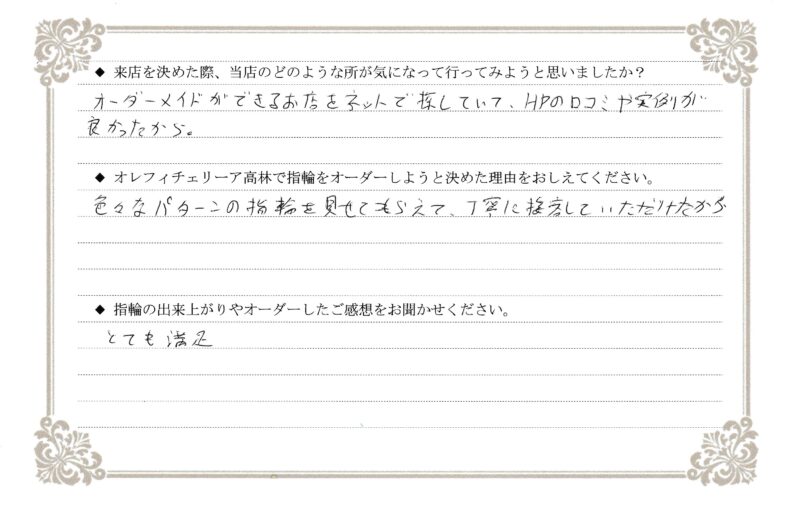 ◆ 来店を決めた際、当店のどのような所が気になって行ってみようと思いましたか？
オーダーメイドができるお店をネットで探していて、HPの口コミや実例が
良かったから。
◆ オレフィチェリーア高林で指輪をオーダーしようと決めた理由をおしえてください。
色々なパターンの指輪を見せてもらえて、丁寧に接客していただけたから
◆ 指輪の出来上がりやオーダーしたご感想をお聞かせください。
とても満足